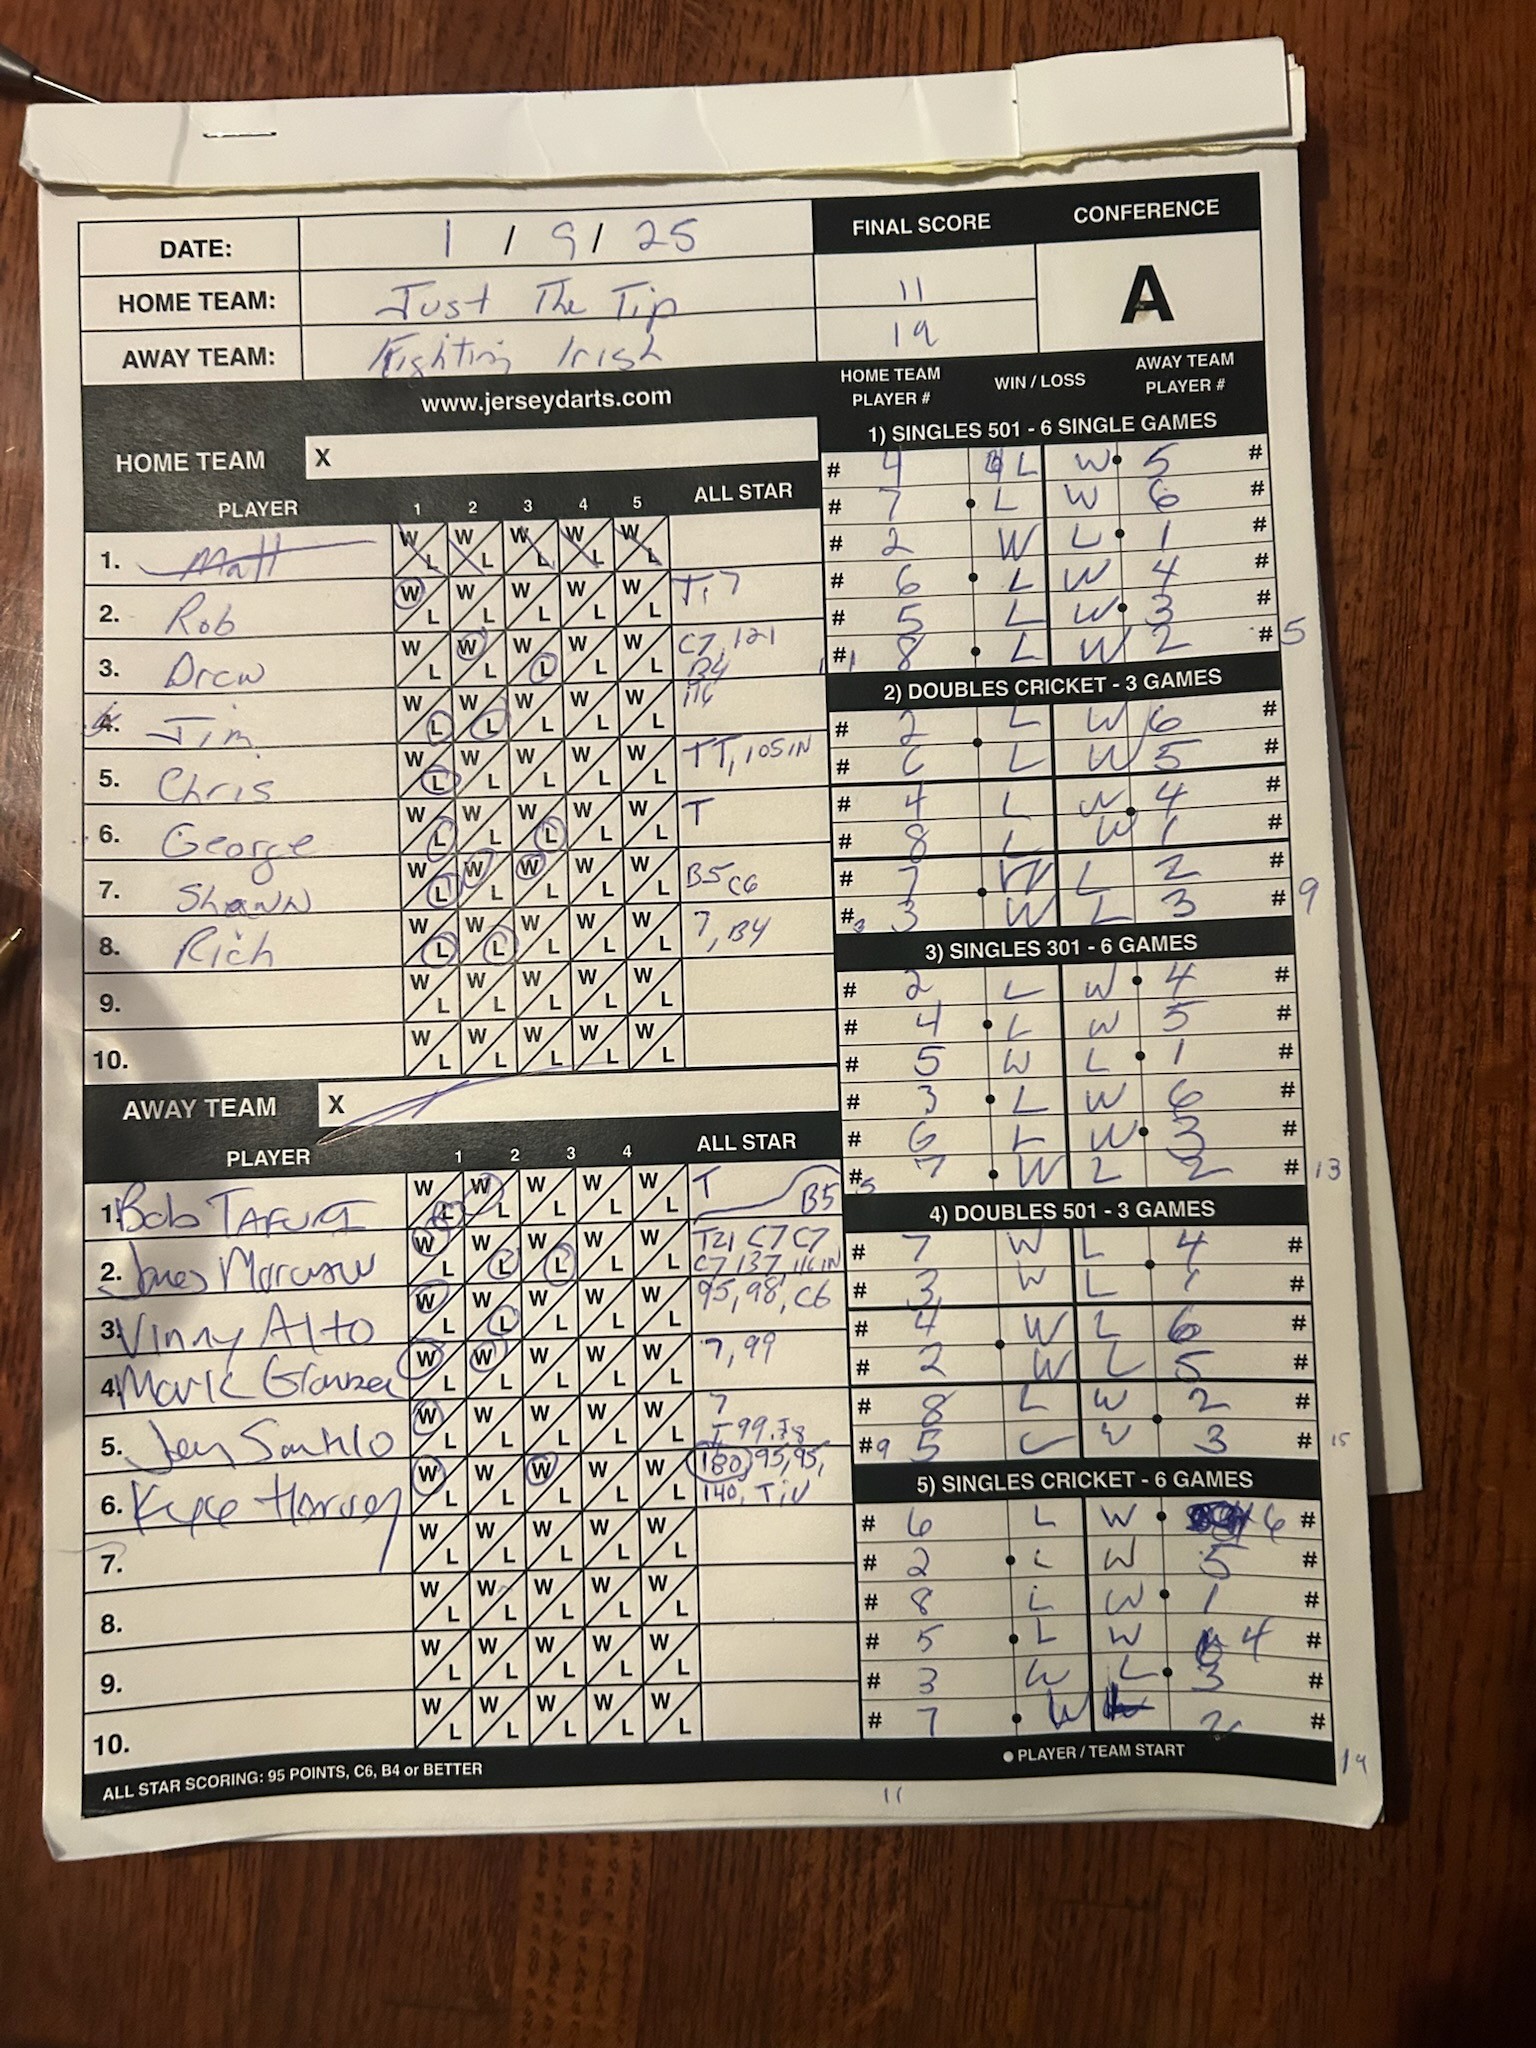 DATE: 1 / 9 / 25
FINAL SCORE
CONFERENCE
HOME TEAM: Just The Tip 11
A
AWAY TEAM: Fighting Irish 19
www.jerseydarts.com
HOME TEAM X
PLAYER 1 2 3 4 5 ALL STAR
1. Matt W L W L W L W L W L
2. Rob W L W L W L W L W L
3. Drew W L W L W L W L W L C7, 121 B4
4. Jim W L W L W L W L W L 116
5. Chris W L W L W L W L W L TT, 105IN
6. George W L W L W L W L W L T
7. Shawn W L W L W L W L W L B5 C6
8. Rich W L W L W L W L W L 7, B4
9. W L W L W L W L W L
10. W L W L W L W L W L
AWAY TEAM X
PLAYER 1 2 3 4 ALL STAR
1. Bob TAFURI W L W L W L W L W L T B5
2. James W L W L W L W L W L T21 C7 C7
C7 137, 116IN
3. Vinny Alto W L W L W L W L W L 95, 98, C6
4. Mark W L W L W L W L W L 7, 99
5. W L W L W L W L W L 7
6. W L W L W L W L W L 180, 95, 95,
140,
7. W L W L W L W L W L
8. W L W L W L W L W L
9. W L W L W L W L W L
10. W L W L W L W L W L
ALL STAR SCORING: 95 POINTS, C6, B4 or BETTER
HOME TEAM PLAYER # WIN / LOSS AWAY TEAM PLAYER #
1) SINGLES 501 - 6 SINGLE GAMES
# 4 L W 5 #
# 7 L W 6 #
# 2 W L 1 #
# 6 L W 4 #
# 5 L W 3 #
# 1 8 L W 2 # 5
2) DOUBLES CRICKET - 3 GAMES
# 2 L W 6 #
# 6 L W 5 #
# 4 L W 4 #
# 8 L W 1 #
# 7 W L 2 #
# 3 3 W L 3 # 9
3) SINGLES 301 - 6 GAMES
# 2 L W 4 #
# 4 L W 5 #
# 5 W L 1 #
# 3 L W 6 #
# 6 L W 3 #
# 5 7 W L 2 # 13
4) DOUBLES 501 - 3 GAMES
# 7 W L 4 #
# 3 W L 1 #
# 4 W L 6 #
# 2 W L 5 #
# 8 L W 2 #
# 9 5 L W 3 # 15
5) SINGLES CRICKET - 6 GAMES
# 6 L W 6 #
# 2 L W 5 #
# 8 L W 1 #
# 5 L W 4 #
# 3 W L 3 #
# 7 W L 2 #
PLAYER / TEAM START
11
19